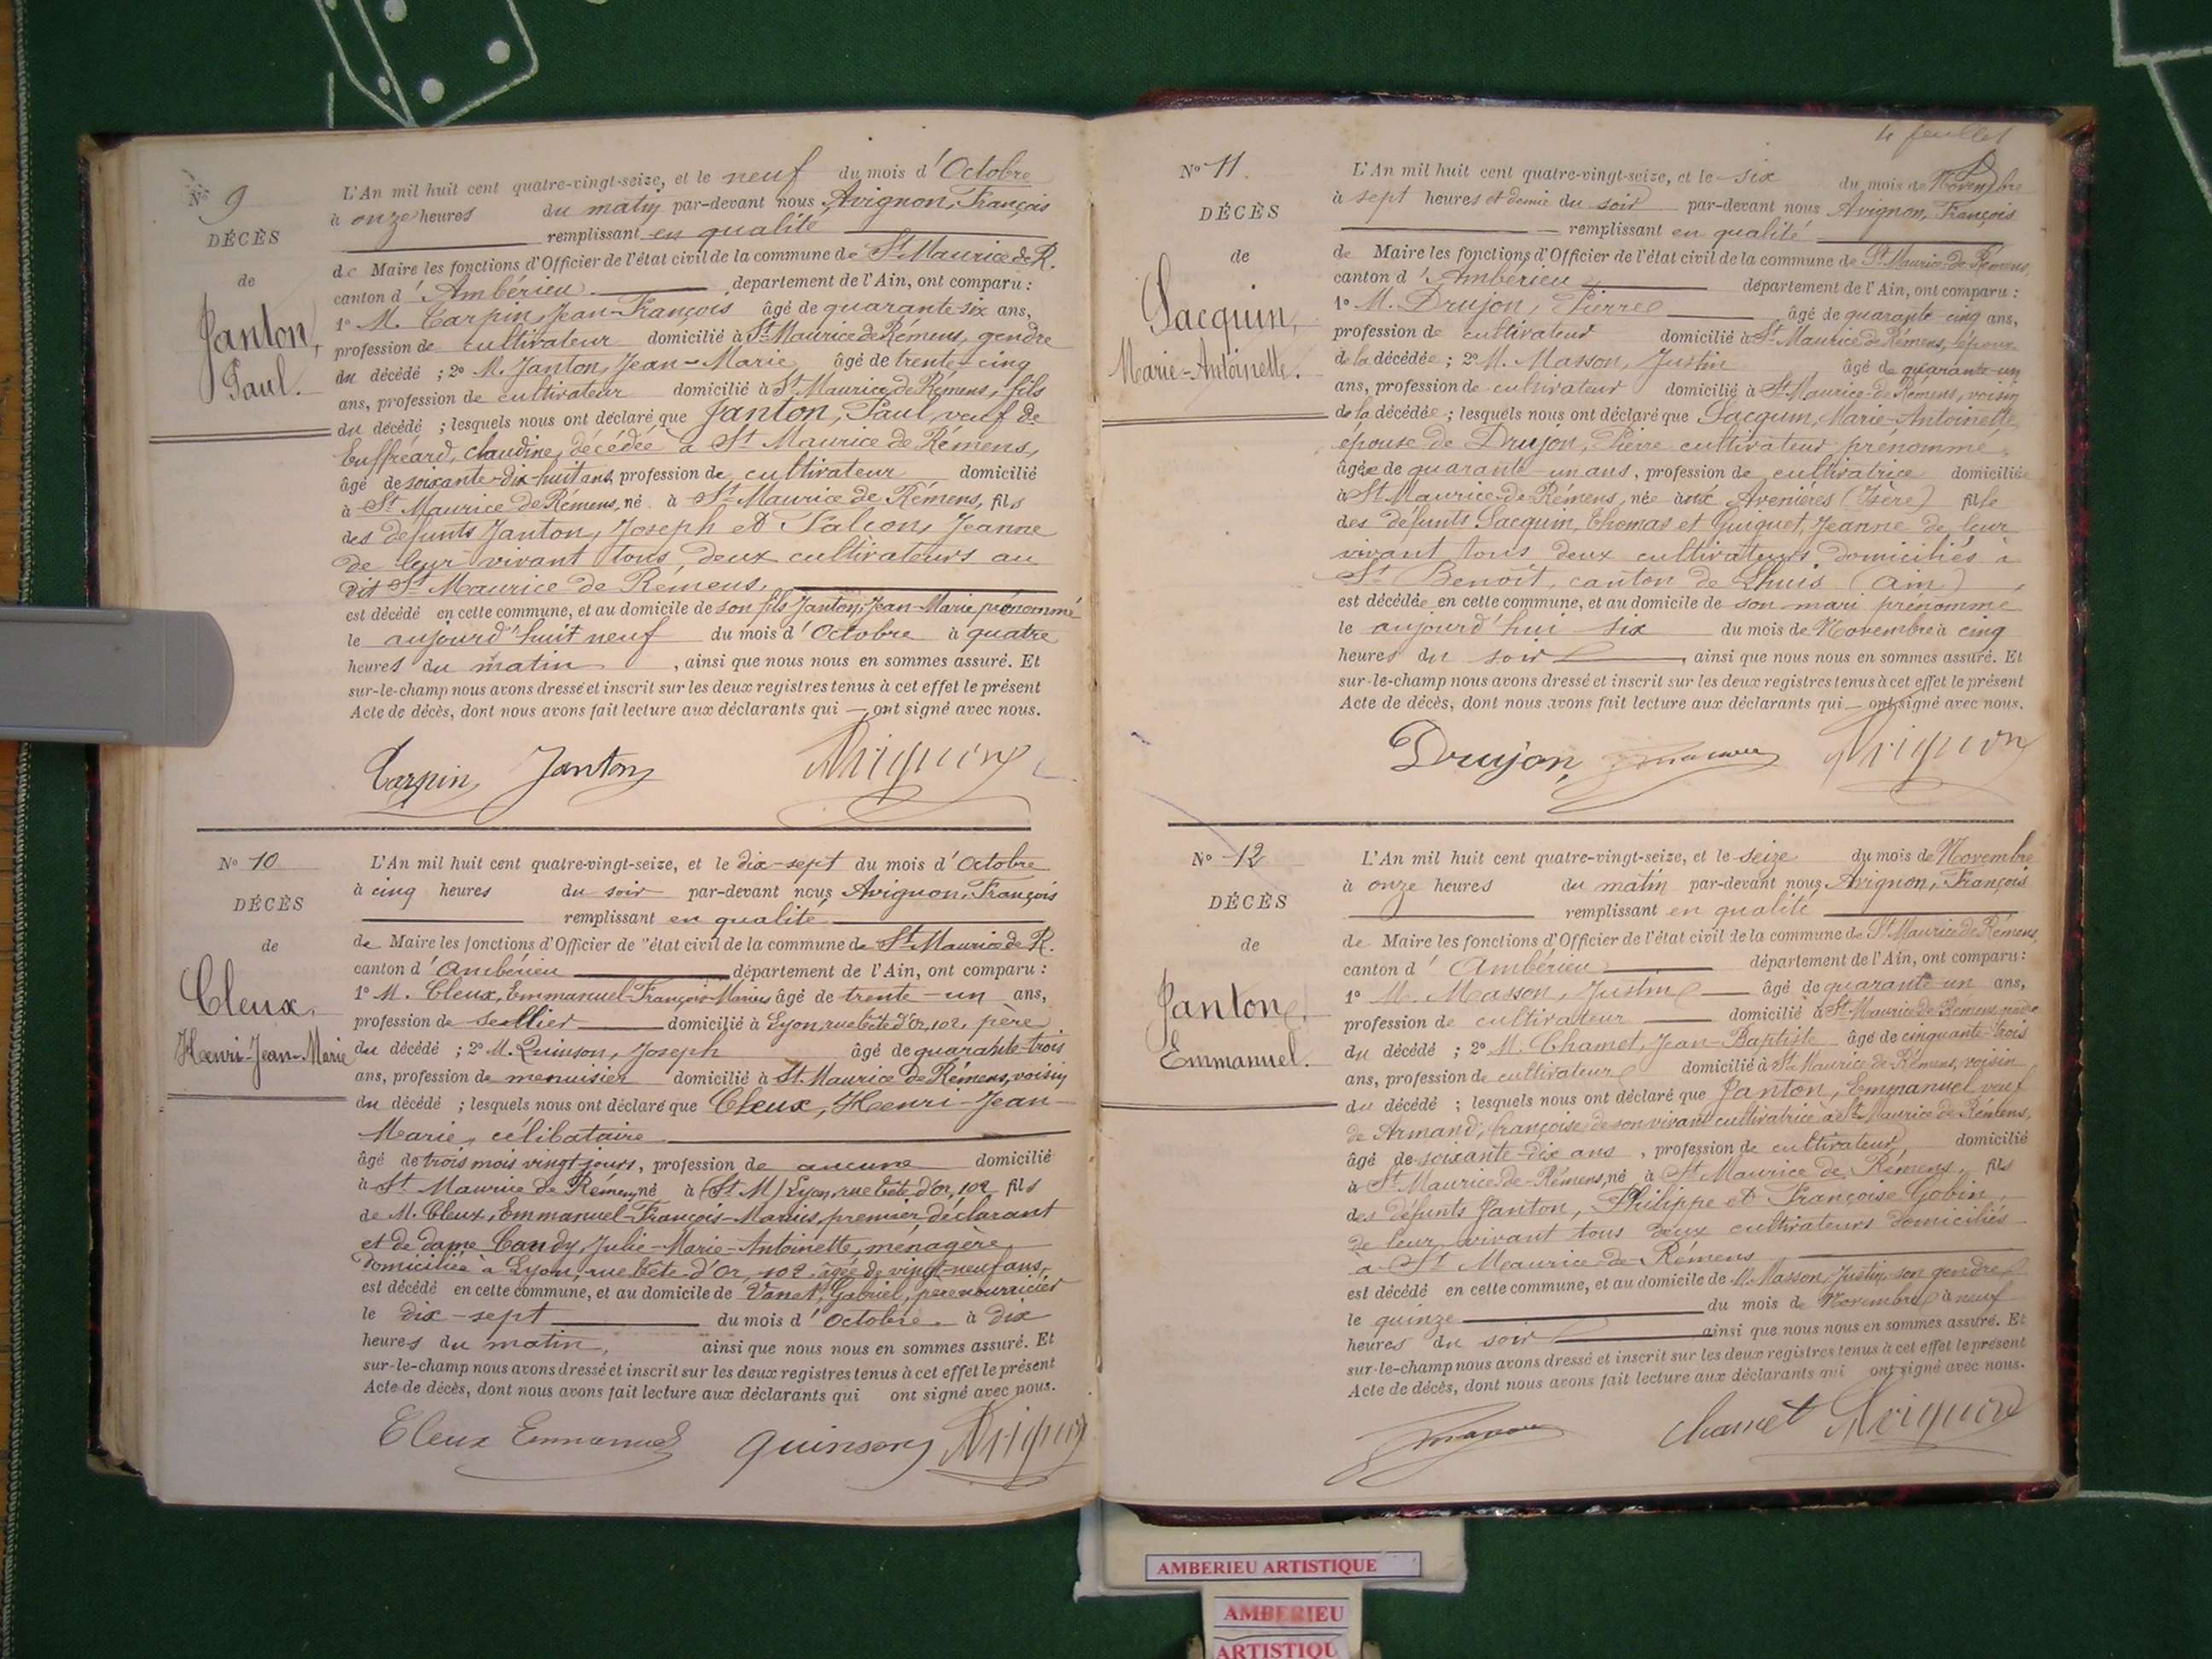 No 9
DÉCÈS
de
Janton,
Paul.
L'An mil huit cent quatre-vingt-seize, et le neuf du mois d'Octobre
à onze heures du matin par-devant nous Avignon, François
remplissant en qualité
de Maire les fonctions d'Officier de l'état civil de la commune de St Maurice de R.
canton d'Ambérieu département de l'Ain, ont comparu :
1o M. Carpin, Jean-François âgé de quarante-six ans,
profession de cultivateur domicilié à St Maurice de Rémens, gendre
du décédé ; 2o M. Janton, Jean-Marie âgé de trente-cinq
ans, profession de cultivateur domicilié à St Maurice de Rémens, fils
du décédé ; lesquels nous ont déclaré que Janton, Paul, veuf de
claudine, décédée à St Maurice de Rémens,
âgé de soixante-dix-huit ans, profession de cultivateur domicilié
à St Maurice de Rémens, né à St Maurice de Rémens, fils
des défunts Janton, Joseph et Falcon, Jeanne
de leur vivant tous deux cultivateurs au
dit St Maurice de Rémens.
est décédé en cette commune, et au domicile de son fils Janton, Jean-Marie prénommé
le aujourd'huit neuf du mois d'Octobre à quatre
heures du matin , ainsi que nous nous en sommes assuré. Et
sur-le-champ nous avons dressé et inscrit sur les deux registres tenus à cet effet le présent
Acte de décès, dont nous avons fait lecture aux déclarants qui — ont signé avec nous.
Carpin Janton Avignon
No 10
DÉCÈS
de
Cleux,
Henri-Jean-Marie
L'An mil huit cent quatre-vingt-seize, et le dix-sept du mois d'Octobre
à cinq heures du soir par-devant nous Avignon, François
remplissant en qualité
de Maire les fonctions d'Officier de l'état civil de la commune de St Maurice de R.
canton d'Ambérieu département de l'Ain, ont comparu :
1o M. Cleux, Emmanuel-François-Marius âgé de trente-un ans,
profession de sellier domicilié à Lyon, rue tête d'or, 102, père
du décédé ; 2o M. Quinson, Joseph âgé de quarante-trois
ans, profession de menuisier domicilié à St Maurice de Rémens, voisin
du décédé ; lesquels nous ont déclaré que Cleux, Henri-Jean-
Marie, célibataire
âgé de trois mois vingt jours, profession de aucune domicilié
à St Maurice de Rémens, né à (St M) Lyon, rue tête d'Or, 102 fils
de M. Cleux, Emmanuel-François-Marius, premier déclarant
et de dame Candy, Julie-Marie-Antoinette, ménagère
domiciliée à Lyon, rue tête d'Or, 102, âgée de vingt-neuf ans,
est décédé en cette commune, et au domicile de Vanet, Gabriel, père nourricier
le dix-sept du mois d'Octobre à dix
heures du matin, ainsi que nous nous en sommes assuré. Et
sur-le-champ nous avons dressé et inscrit sur les deux registres tenus à cet effet le présent
Acte de décès, dont nous avons fait lecture aux déclarants qui ont signé avec nous.
Cleux Emmanuel Quinson Avignon
4 feuillet
No 11.
DÉCÈS
de
Jacquin,
Marie-Antoinette.
L'An mil huit cent quatre-vingt-seize, et le six du mois de Novembre
à sept heures et demie du soir par-devant nous Avignon, François
remplissant en qualité
de Maire les fonctions d'Officier de l'état civil de la commune de St Maurice de Rémens,
canton d'Ambérieu département de l'Ain, ont comparu :
1o M. Drujon, Pierre âgé de quarante-cinq ans,
profession de cultivateur domicilié à St Maurice de Rémens, l'époux
de la décédée ; 2o M. Masson, Justin âgé de quarante-un
ans, profession de cultivateur domicilié à St Maurice-de-Rémens, voisin
de la décédée ; lesquels nous ont déclaré que Jacquin, Marie-Antoinette,
épouse de Drujon, Pierre cultivateur prénommé,
âgée de quarante-un ans, profession de cultivatrice domiciliée
à St Maurice-de-Rémens, née aux Avenières (Isère) fille
des défunts Jacquin, Thomas et Guiguet, Jeanne de leur
vivant tous deux cultivateurs domiciliés à
St Benoît, canton de Lhuis (Ain)
est décédée en cette commune, et au domicile de son mari prénommé
le aujourd'hui six du mois de Novembre à cinq
heures du soir , ainsi que nous nous en sommes assuré. Et
sur-le-champ nous avons dressé et inscrit sur les deux registres tenus à cet effet le présent
Acte de décès, dont nous avons fait lecture aux déclarants qui — ont signé avec nous.
Drujon, Masson Avignon
No 12
DÉCÈS
de
Janton,
Emmanuel.
L'An mil huit cent quatre-vingt-seize, et le seize du mois de Novembre
à onze heures du matin par-devant nous Avignon, François
remplissant en qualité
de Maire les fonctions d'Officier de l'état civil de la commune de St Maurice de Rémens,
canton d'Ambérieu département de l'Ain, ont comparu :
1o M. Masson, Justin âgé de quarante-un ans,
profession de cultivateur domicilié à St Maurice-de-Rémens, gendre
du décédé ; 2o M. Chamet, Jean-Baptiste âgé de cinquante-trois
ans, profession de cultivateur domicilié à St Maurice de Rémens, voisin
du décédé ; lesquels nous ont déclaré que Janton, Emmanuel, veuf
de Armand, françoise, de son vivant cultivatrice à St Maurice de Rémens,
âgé de soixante-dix ans , profession de cultivateur domicilié
à St Maurice-de-Rémens, né à St Maurice de Rémens, fils
des défunts Janton, Philippe et Françoise Gobin,
de leur vivant tous deux cultivateurs domiciliés
à St Maurice de Rémens
est décédé en cette commune, et au domicile de M. Masson, Justin, son gendre
le quinze du mois de Novembre à neuf
heures du soir ainsi que nous nous en sommes assuré. Et
sur-le-champ nous avons dressé et inscrit sur les deux registres tenus à cet effet le présent
Acte de décès, dont nous avons fait lecture aux déclarants qui ont signé avec nous.
Masson Chamet Avignon
AMBERIEU ARTISTIQUE
AMBERIEU
ARTISTIQU